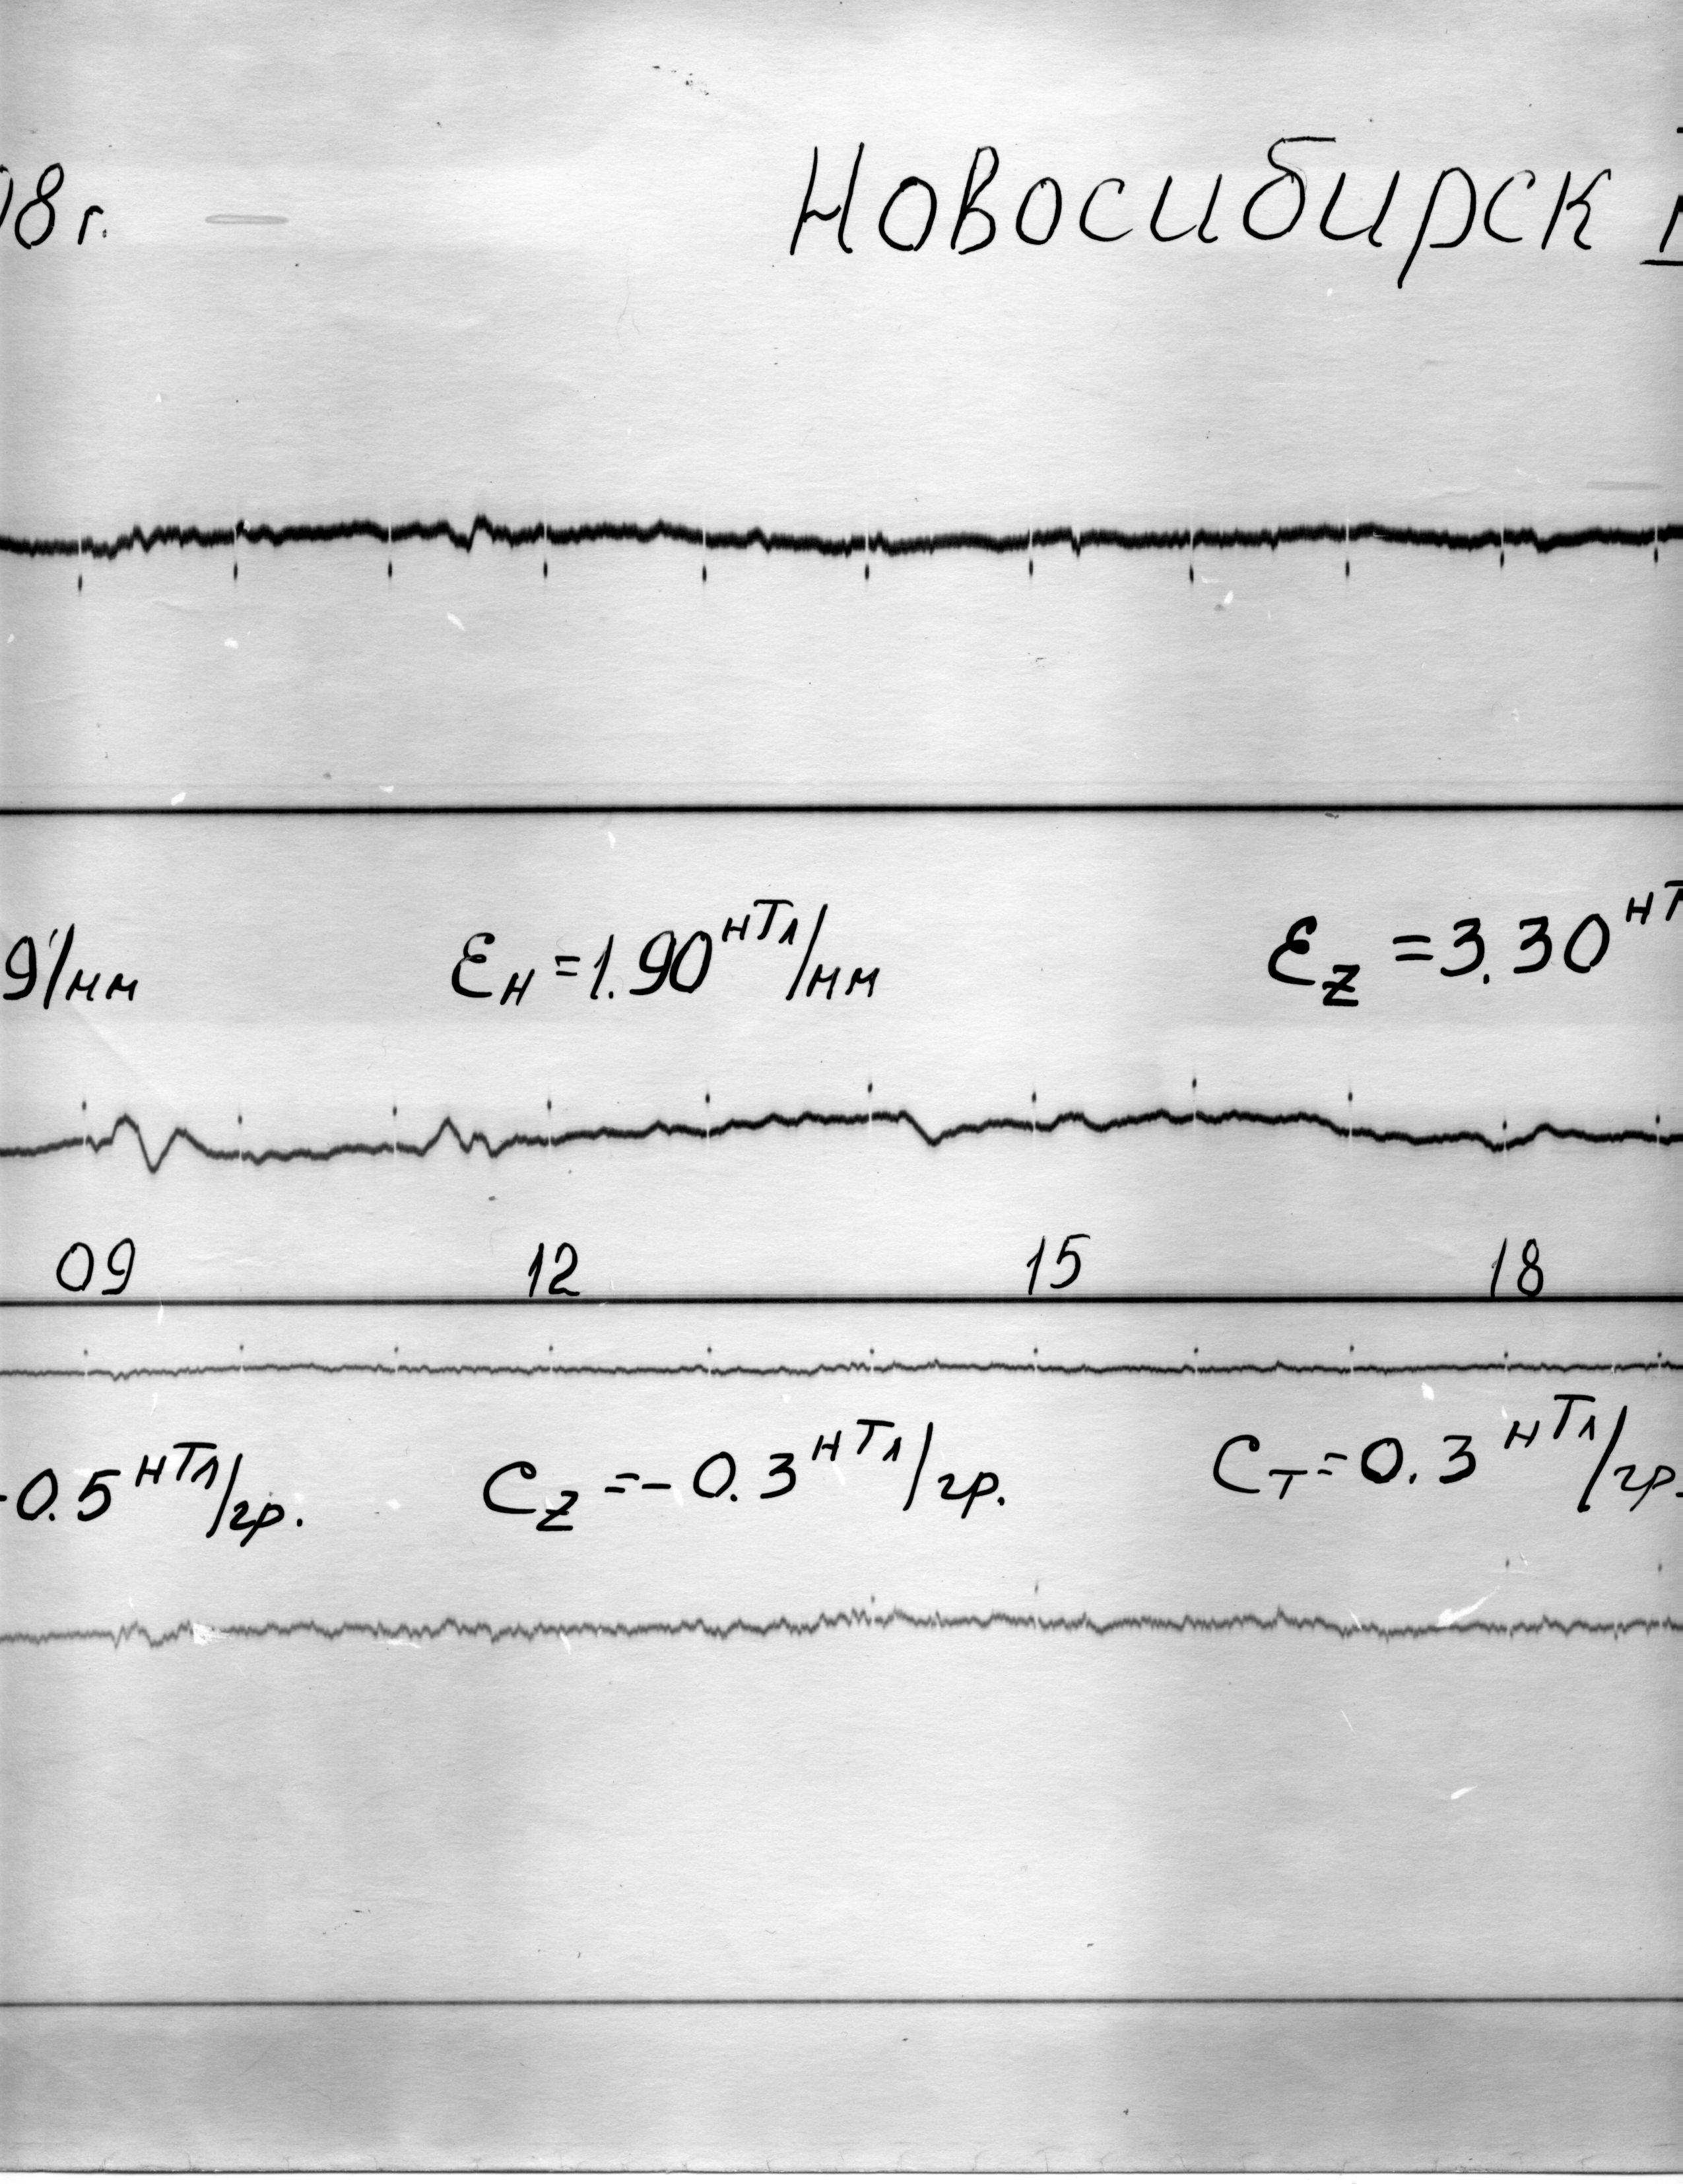 08г. Новосибирск
9'/мм Ɛ_H = 1.90 нТл/мм Ɛ_Z = 3.30 нТ
09 12 15 18
-0.5 нТл/гр. C_Z = -0.3 нТл/гр. C_T = 0.3 нТл/гр.